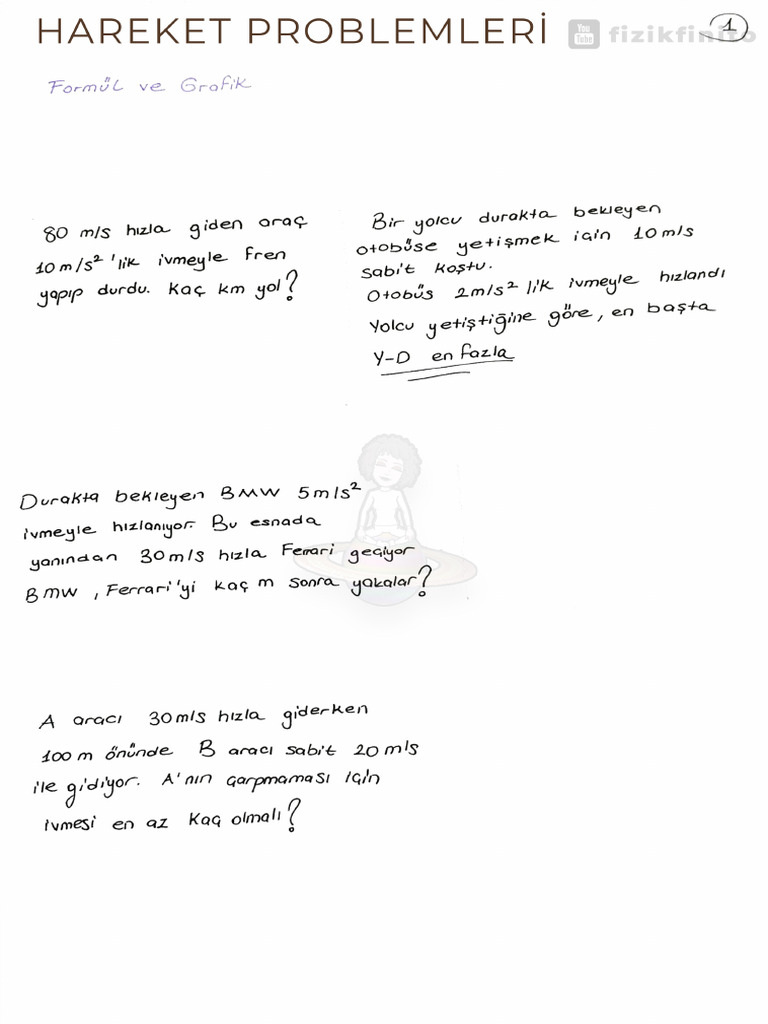 HAREKET PROBLEMLERİ
You Tube fizikfinito
1
Formül ve Grafik
80 m/s hızla giden araç
10 m/s² 'lik ivmeyle fren
yapıp durdu. Kaç km yol?
Bir yolcu durakta bekleyen
otobüse yetişmek için 10 m/s
sabit koştu.
Otobüs 2m/s² lik ivmeyle hızlandı
Yolcu yetiştiğine göre, en başta
Y-D en fazla
Durakta bekleyen BMW 5m/s²
ivmeyle hızlanıyor. Bu esnada
yanından 30m/s hızla Ferrari geçiyor
BMW, Ferrari'yi kaç m sonra yakalar?
A aracı 30m/s hızla giderken
100 m önünde B aracı sabit 20 m/s
ile gidiyor. A'nın çarpmaması için
ivmesi en az kaç olmalı?